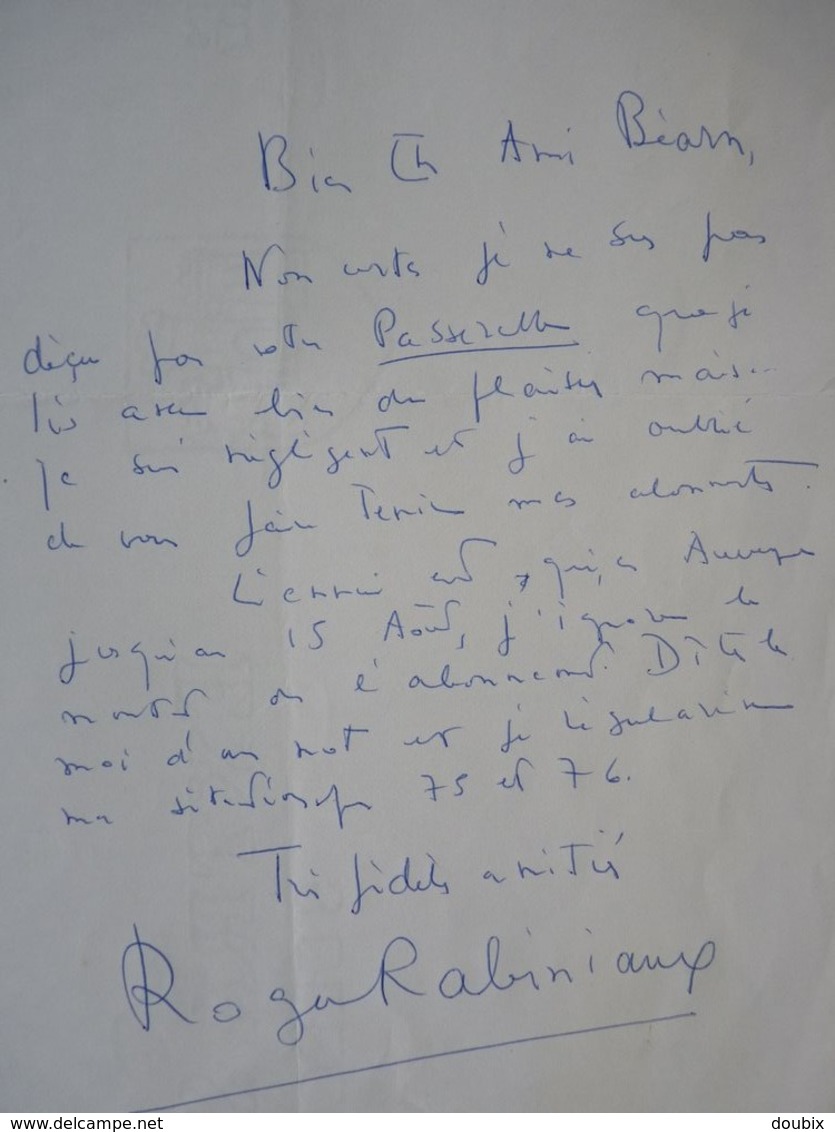 Bien Ch Ami Béarn,
Non certes je ne suis pas
déçu par votre Passerelle que je
lis avec bien du plaisir mais...
je suis négligent et j'ai oublié
de vous faire tenir mes abonnements.
L'ennui est, qu'en Auvergne
jusqu'au 15 Août, j'ignore le
montant de l'abonnement. Dites le
moi d'un mot et je régulariserai
ma situation pour 75 et 76.
Très fidèles amitiés
Roger Rabiniaux
delcampe.net
doubix